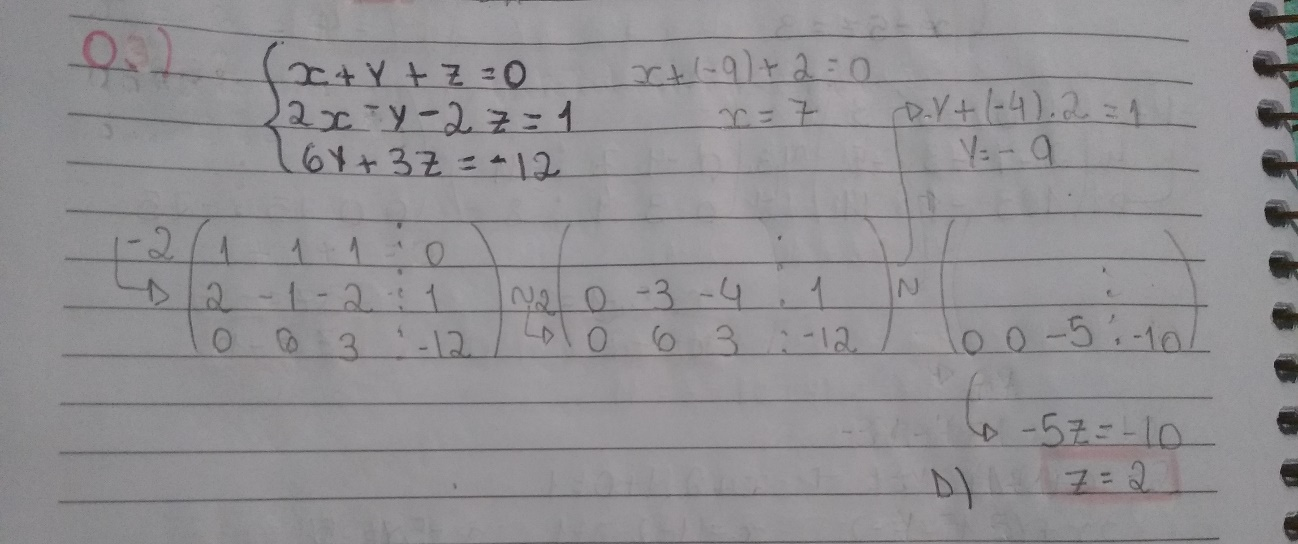 03)
x + y + z = 0
2x - y - 2z = 1
6y + 3z = -12
x + (-9) + 2 = 0
x = 7
y + (-4) . 2 = 1
y = - 9
-2 ( 1 1 1 : 0 )
( 2 -1 -2 : 1 ) ~2 ( 0 -3 -4 : 1 ) ~ ( : )
( 0 6 3 : -12 ) ( 0 6 3 : -12 ) ( 0 0 -5 : -10 )
-5z = -10
D) z = 2